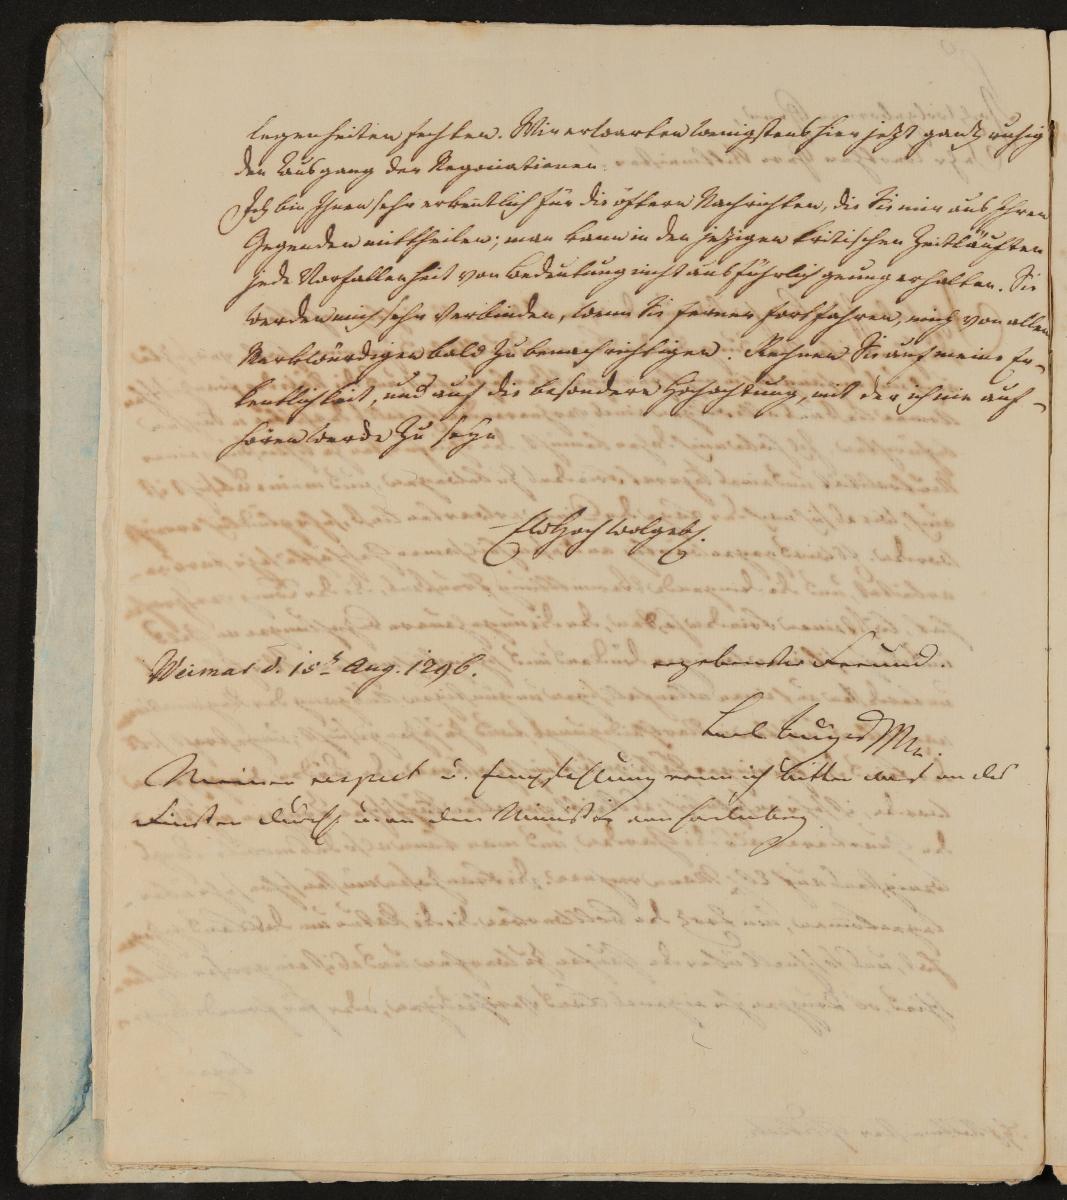 legenheiten fechten. Wir erwarten wenigstens hier jetzt gantz ruhig
den Ausgang der Negociationen.
Ich bin Ihnen sehr erkentlich für die öftern Nachrichten, die Sie mir aus Ihren
Gegenden mittheilen; man kann in den jetzigen kritischen Zeitläuften
jede Vorfallenheit von Bedeutung nicht ausführlich genung erhalten. Sie
werden mich sehr verbinden, wenn Sie ferner fortfahren, mich von allen
Merkwürdigen bald zu benachrichtigen. Rechnen Sie auf meine Er-
kentlichkeit, und auf die besondere Hochachtung, mit der ich nie auf-
hören werde zu seyn
Ew Hochwolgeb.
Weimar d. 15t Aug. 1796.
ergebenster Freund.
Carl August
Meinen respect u. Empfehlung ich bitte an des
Fürsten Durchl. u. an den Minister von Hardenberg